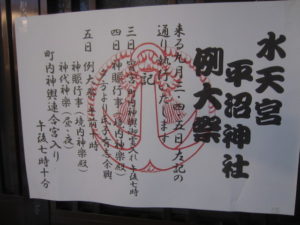 水天宮
平沼神社
例大祭
来る九月三・四・五日左記の
通り執行いたします
記
三日 御霊入れ 午後七時
四日 神賑行事(境内神楽殿)
五日 例大祭 午前十時
神賑行事(境内神楽殿)
神代神楽(昼・夜)
町内神輿連合宮入り
午後七時十分